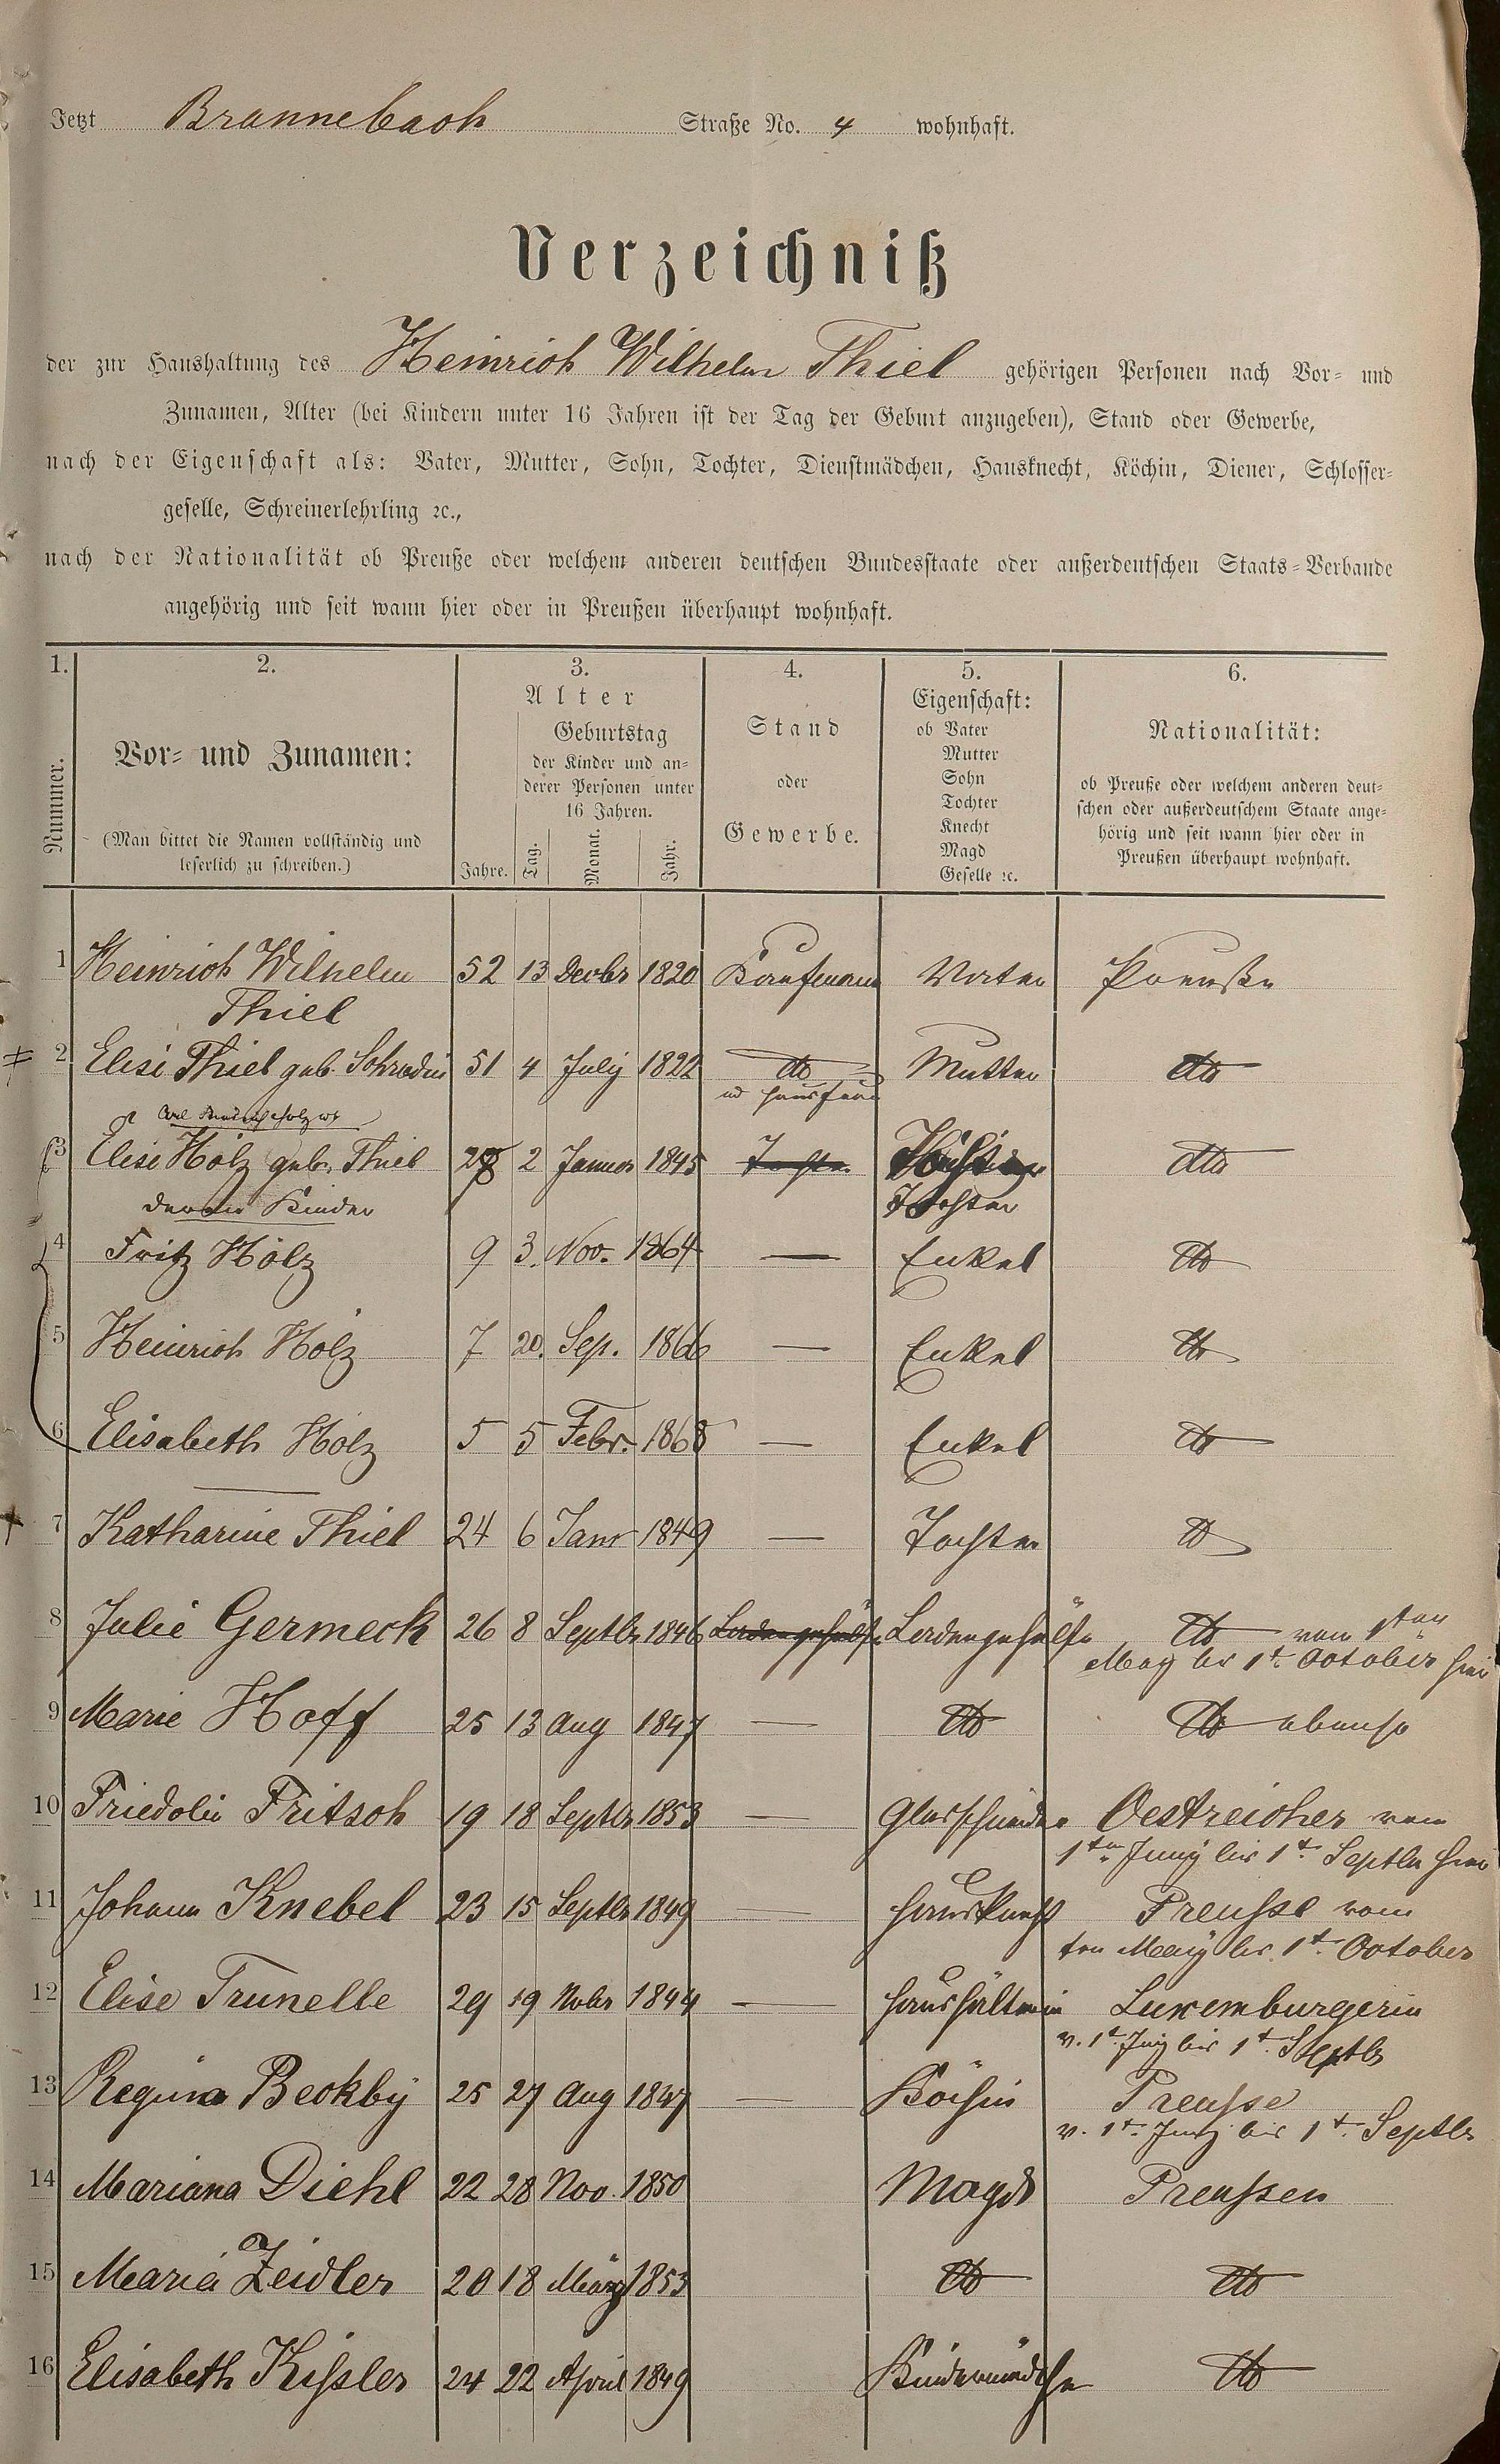 Jetzt Brunnebach Straße No. 4 wohnhaft.
Verzeichniß
der zur Haushaltung des Heinrich Wilhelm Thiel gehörigen Personen nach Vor- und
Zunamen, Alter (bei Kindern unter 16 Jahren ist der Tag der Geburt anzugeben), Stand oder Gewerbe,
nach der Eigenschaft als: Vater, Mutter, Sohn, Tochter, Dienstmädchen, Hausknecht, Köchin, Diener, Schlosser-
geselle, Schreinerlehrling ꝛc.,
nach der Nationalität ob Preuße oder welchem anderen deutschen Bundesstaate oder außerdeutschen Staats-Verbande
angehörig und seit wann hier oder in Preußen überhaupt wohnhaft.
1. 2. 3. 4. 5. 6.
Nummer.
Vor- und Zunamen:
(Man bittet die Namen vollständig und
leserlich zu schreiben.)
Alter
Jahre.
Geburtstag
der Kinder und an-
derer Personen unter
16 Jahren.
Tag. Monat. Jahr.
Stand
oder
Gewerbe.
Eigenschaft:
ob Vater
Mutter
Sohn
Tochter
Knecht
Magd
Geselle ꝛc.
Nationalität:
ob Preuße oder welchem anderen deut-
schen oder außerdeutschem Staate ange-
hörig und seit wann hier oder in
Preußen überhaupt wohnhaft.
1 Heinrich Wilhelm 52 13 Decbr 1820 Kaufmann Vater Preuße
Thiel
2 Elise Thiel geb. Schrodin 51 4 July 1822 dto Mutter dto
u Hausfrau
3 Elise Hölz geb. Thiel 28 2 Januar 1845 Tochter dto
Tochter
deren Kinder
4 Fritz Hölz 9 3. Nov. 1864 — Enkel dto
5 Heinrich Hölz 7 20. Sep. 1866 — Enkel dto
6 Elisabeth Hölz 5 5 Febr. 1868 — Enkel dto
7 Katharine Thiel 24 6 Janr 1849 — Tochter dto
8 Julie Germeck 26 8 Septbr 1846 Ladengehülfin Ladengehülfin dto vom 1ten
May bis 1t. October hier
9 Marie Hoff 25 13 Aug 1847 — dto dto ebenso
10 Friedolin Fritsch 19 18 Septbr 1853 — Glasschneider Oestreicher vom
1ten Juny bis 1t. Septbr hier
11 Johann Knebel 23 15 Septbr 1849 — Hausknecht Preusse vom
ten May bis 1t. October
12 Elise Trunelle 29 19 Nobr 1844 — Haushälterin Luxemburgerin
v. 1t. Juny bis 1t. Septbr
13 Regina Beckby 25 27 Aug 1847 — Köchin Preusse
v. 1t. Juny bis 1t. Septbr
14 Mariana Diehl 22 28 Nov. 1850 Magd Preussen
15 Maria Zeidler 20 18 März 1853 dto dto
16 Elisabeth Kissler 24 22 April 1849 Kindermädchen dto